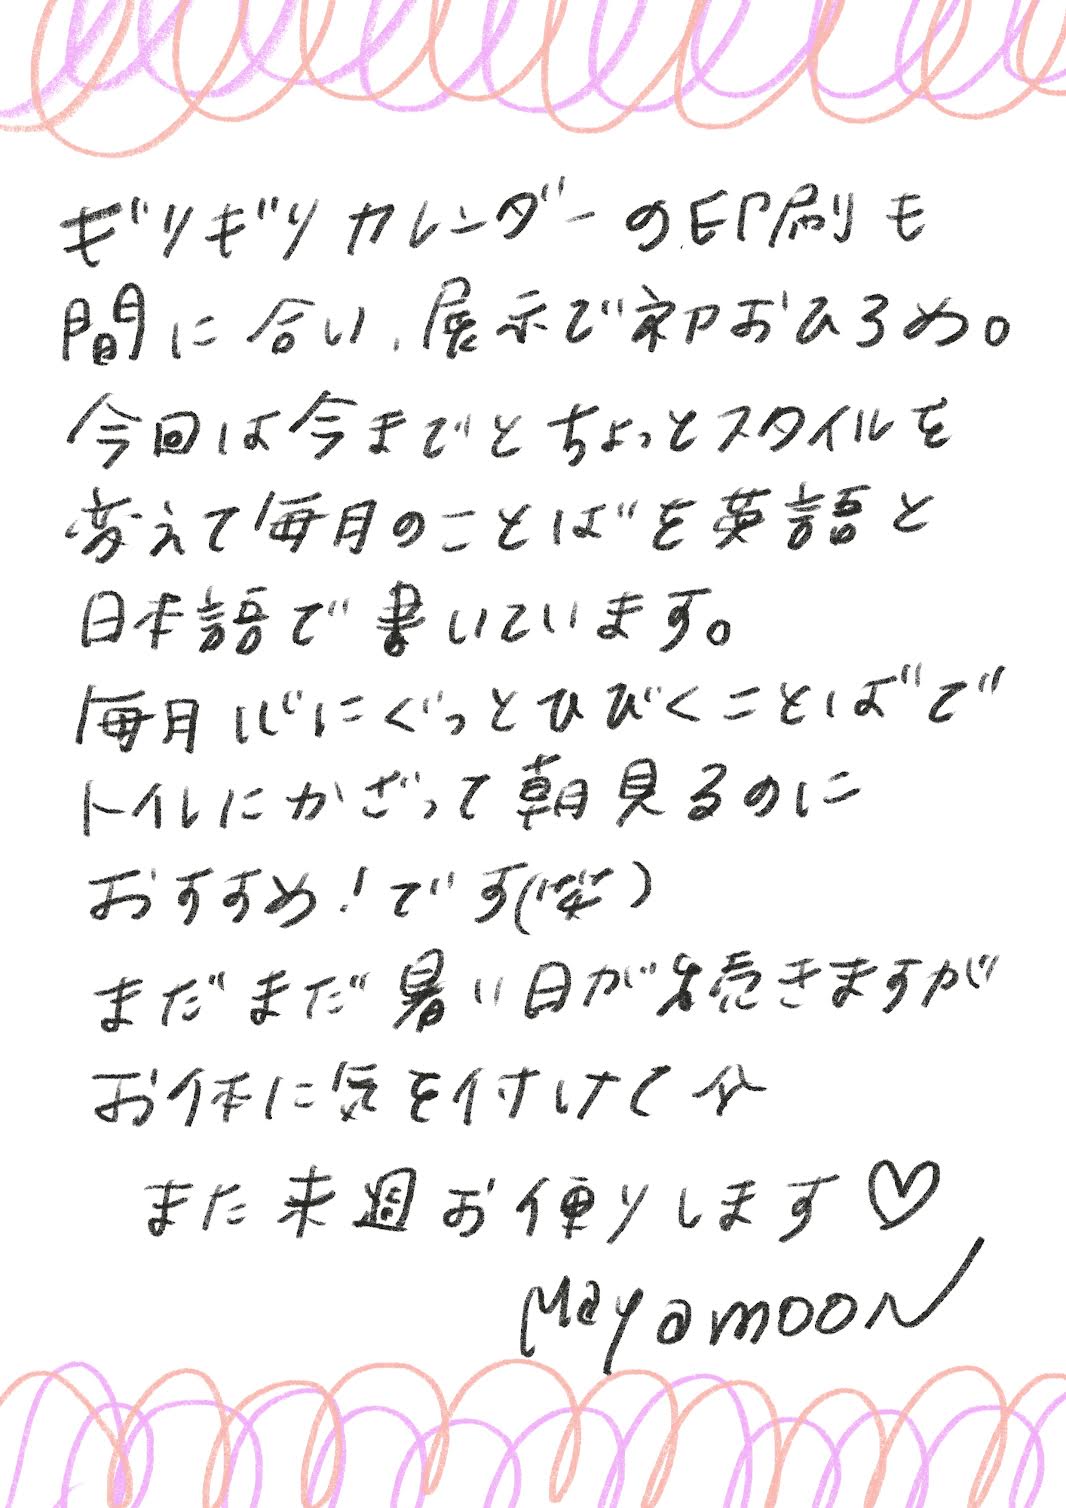 ギリギリカレンダーの印刷も
間に合い、展示で初おひろめ。
今回は今までとちょっとスタイルを
変えて毎月のことばを英語と
日本語で書いています。
毎月心にぐっとひびくことばで
トイレにかざって朝見るのに
おすすめ!です(笑)
まだまだ暑い日が続きますが
お体に気を付けて☆
また来週お便りします♡
Mayamoon